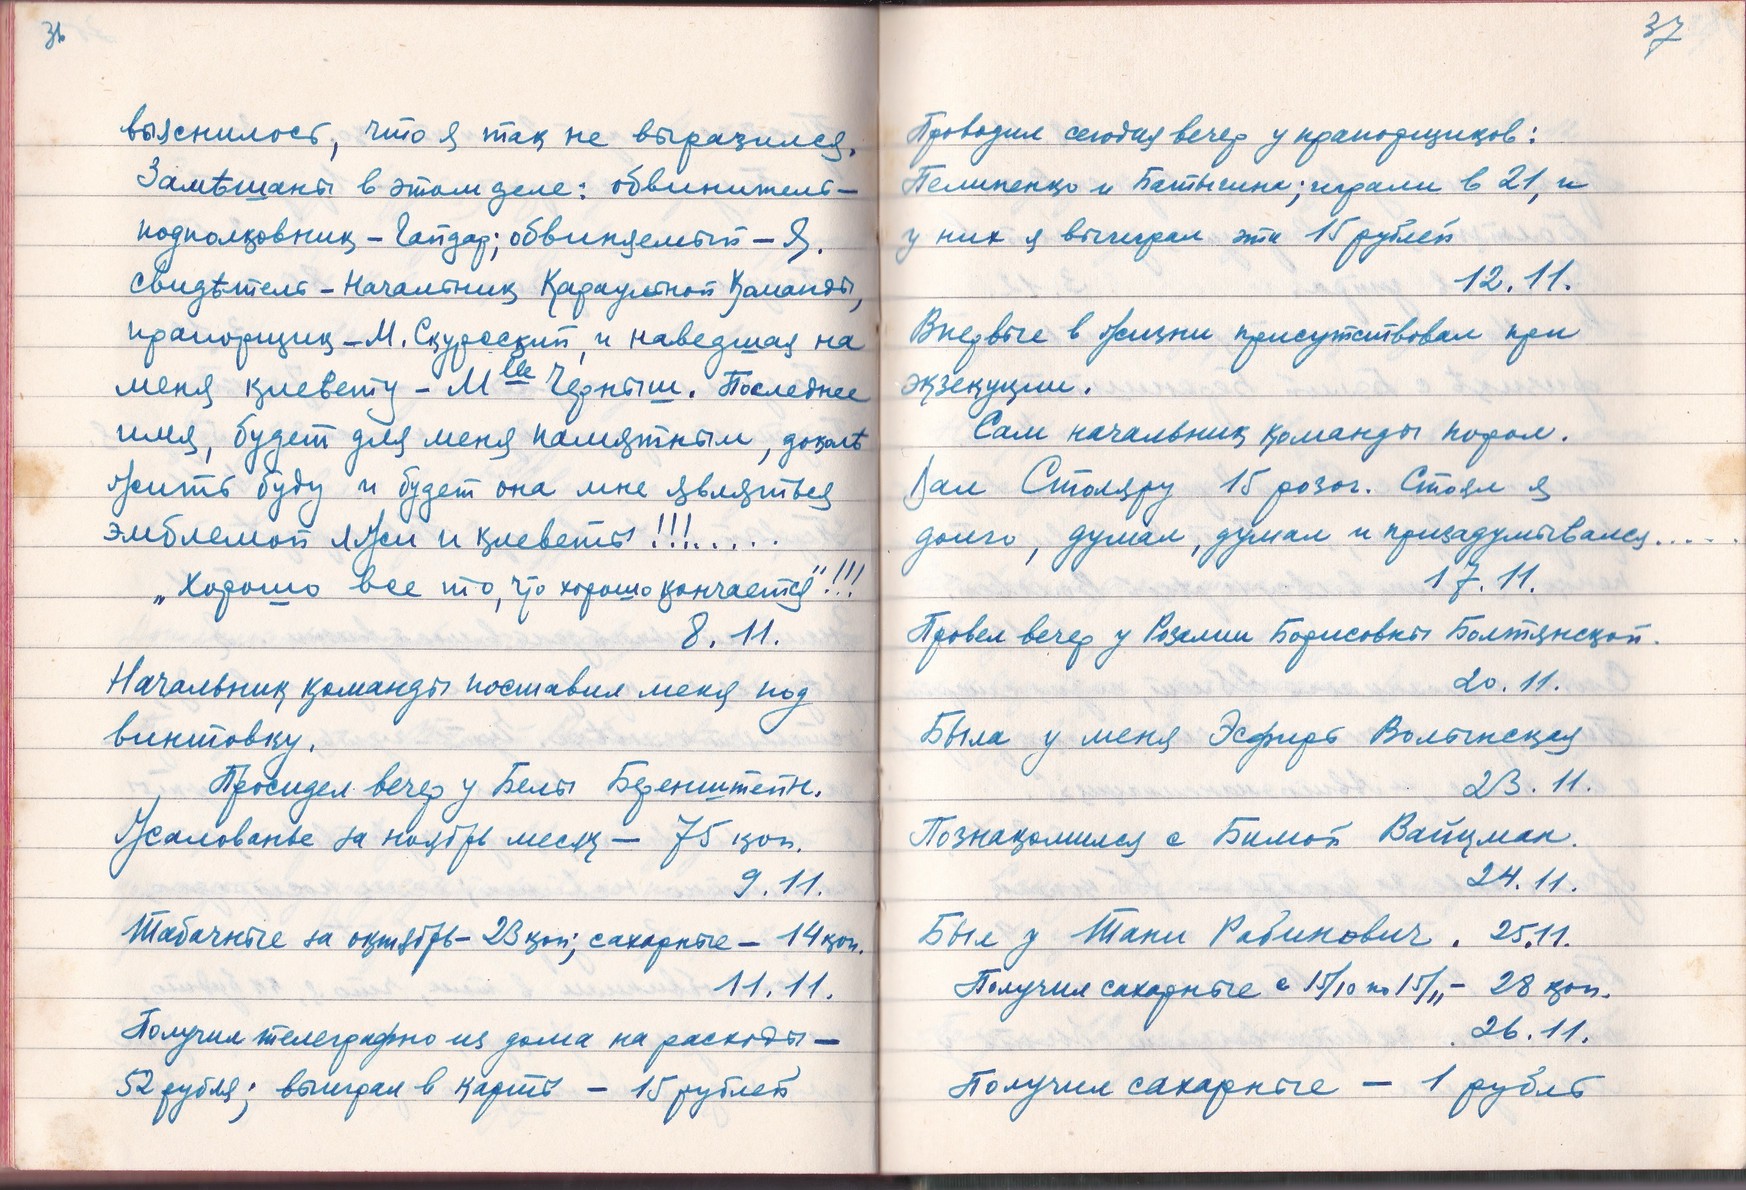 36
выяснилось, что я так не выразился.
Замѣшаны в этом деле: обвинитель –
подполковник – Гайдар; обвиняемый – Я.
Свидѣтель – Начальник Караульной Команды,
прапорщик – М. Скурский, и наведшая на
меня клевету – Mlle Черныш. Последнее
имя, будет для меня памятным, доколѣ
жить буду и будет она мне являться
эмблемой лжи и клеветы!!!.....
„Хорошо все то, что хорошо кончается"!!!
8. 11.
Начальник команды поставил меня под
винтовку.
Просидел вечер у Белы Беренштейн.
Жалованье за ноябрь месяц – 75 коп.
9. 11.
Табачные за октябрь – 23 коп; сахарные – 14 коп.
11. 11.
Получил телеграфно из дома на расходы –
52 рубля; выиграл в карты – 15 рублей
37
Проводил сегодня вечер у прапорщиков:
Пелипенко и Батыгина; играли в 21, и
у них я выиграл эти 15 рублей
12. 11.
Впервые в жизни присутствовал при
экзекуции.
Сам начальник команды порол.
Дал Столяру 15 розог. Стоял я
долго, думал, думал и призадумывался.....
17. 11.
Провел вечер у Розалии Борисовны Болтянской.
20. 11.
Была у меня Эсфирь Волынская
23. 11.
Познакомился с Бимой Вайцман.
24. 11.
Был у Тани Рабинович. 25.11.
Получил сахарные с 15/10 по 15/11 – 28 коп.
26. 11.
Получил сахарные – 1 рубль